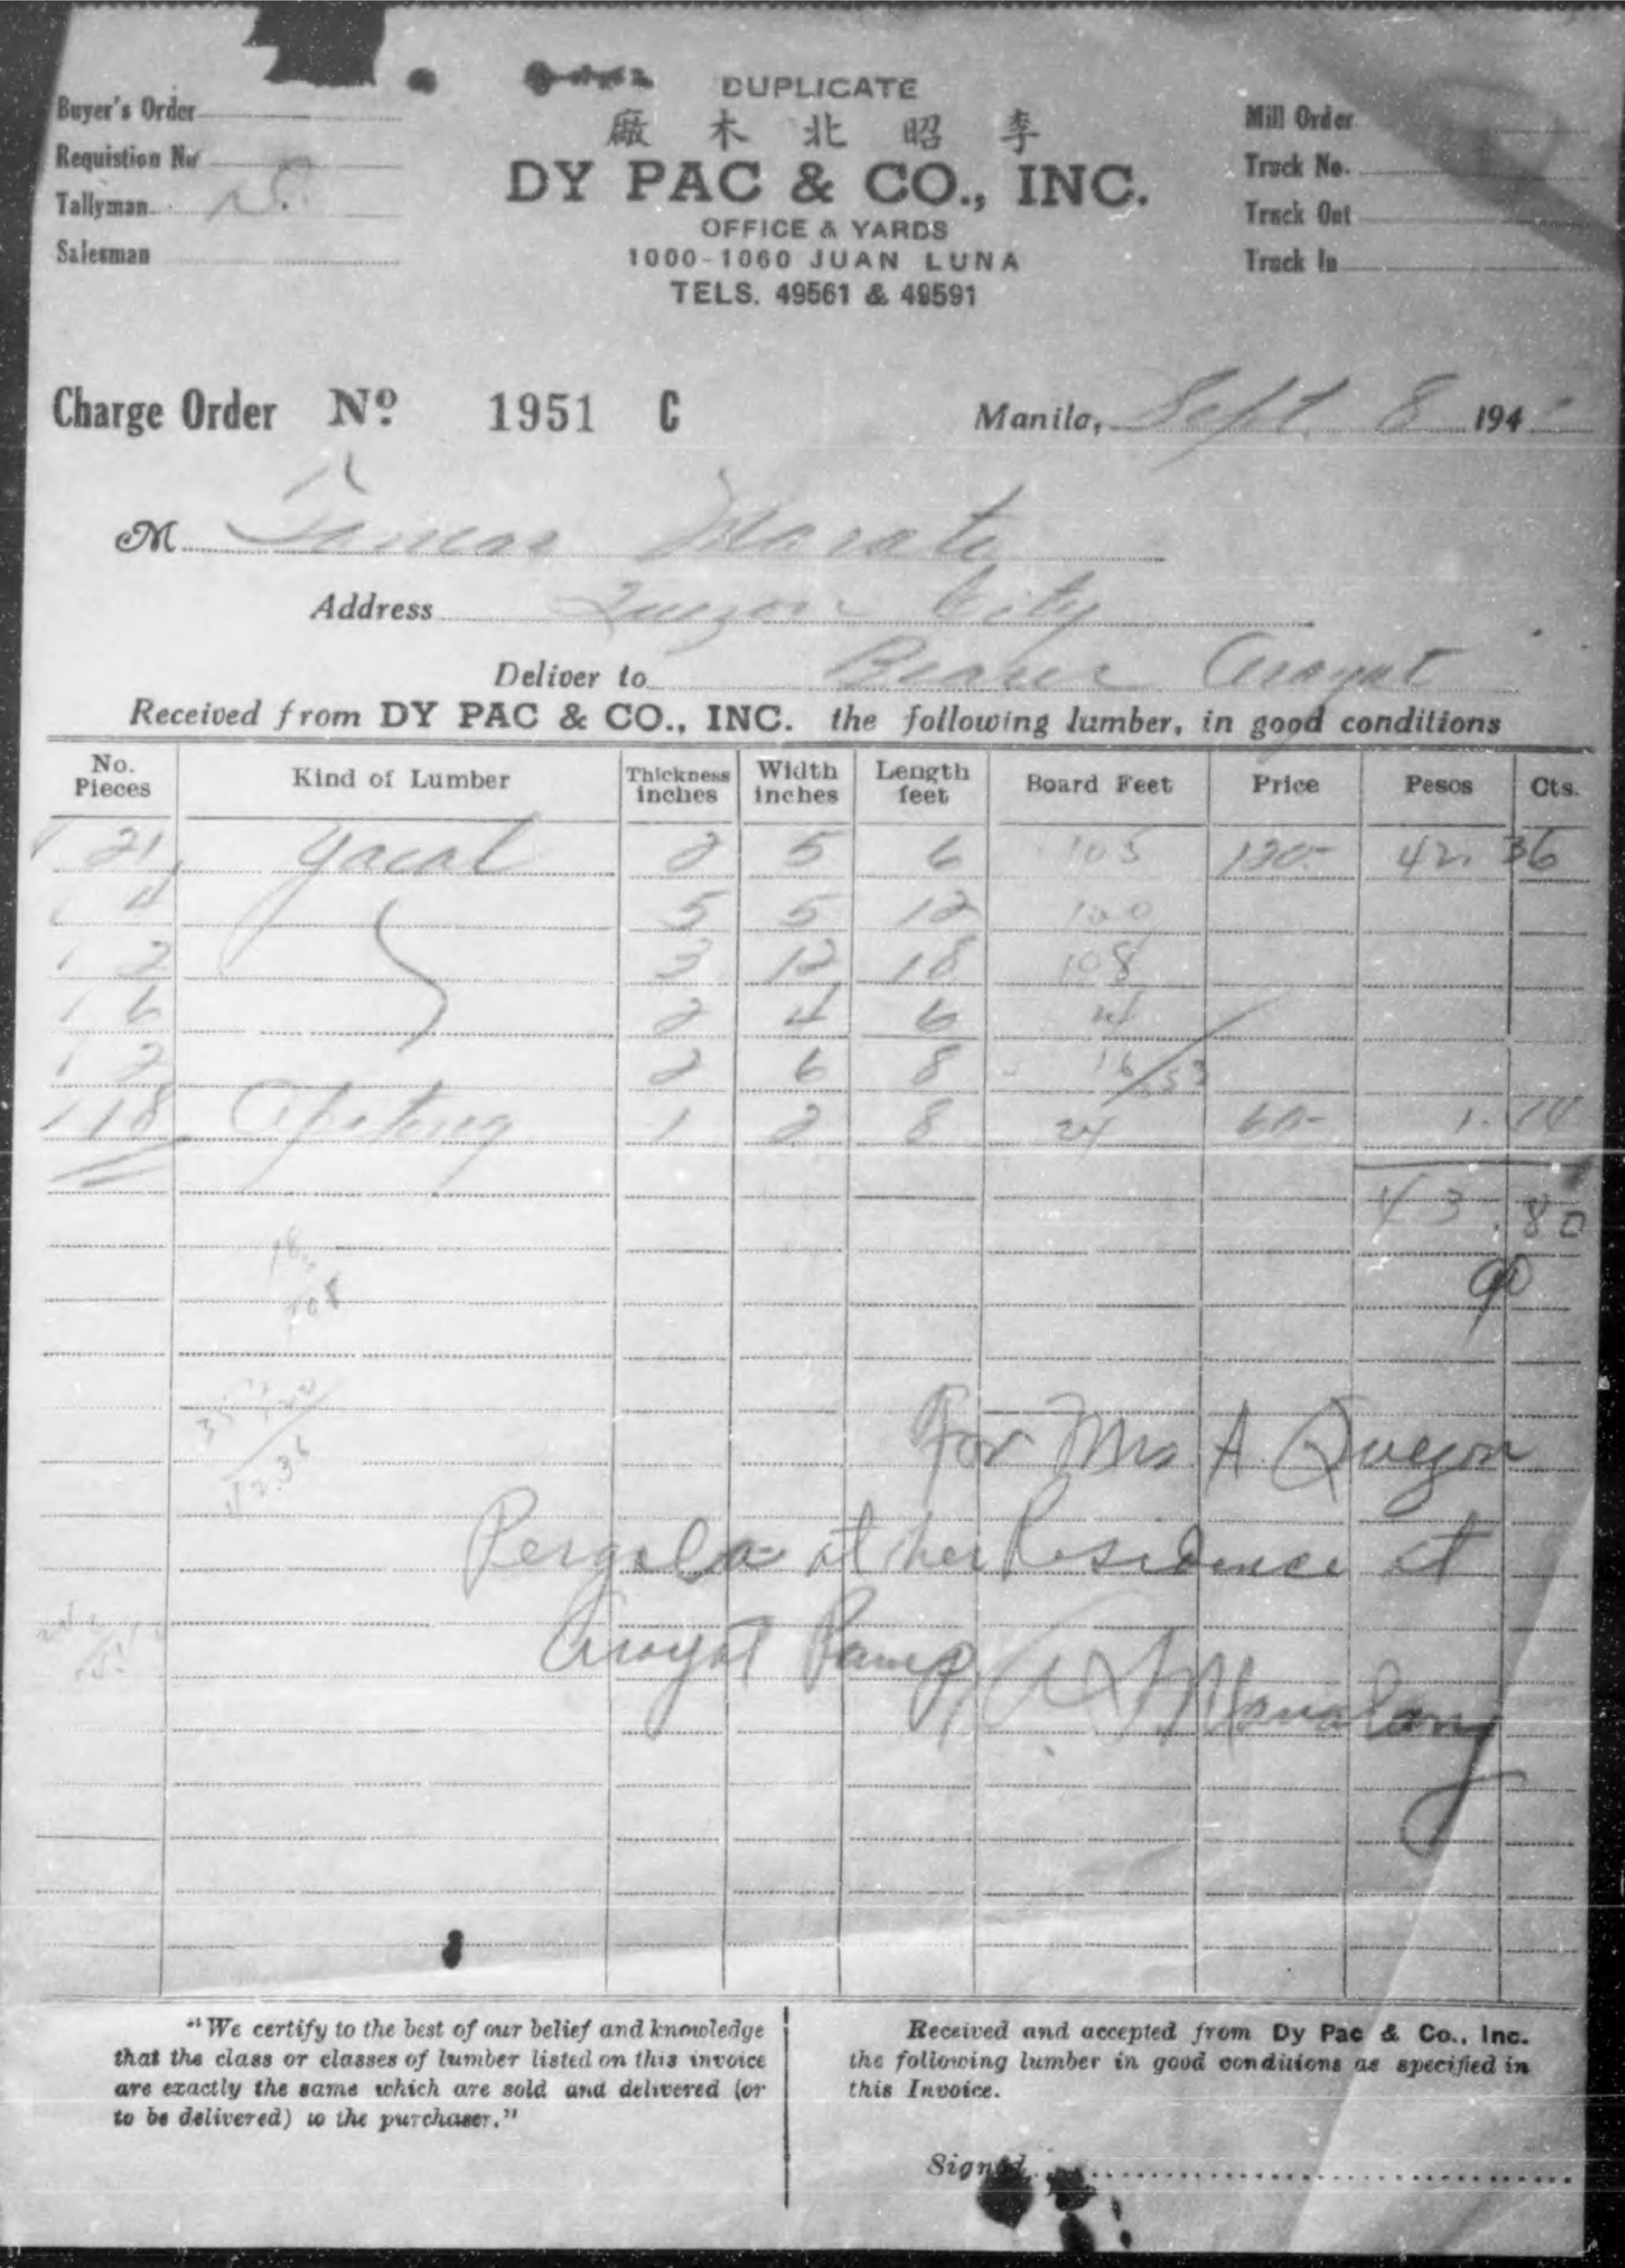 DUPLICATE
廠木北昭李
DY PAC & CO., INC.
OFFICE & YARDS
1000-1060 JUAN LUNA
TELS. 49561 & 49591
Buyer's Order
Requistion No
Tallyman
Salesman
Mill Order
Truck No.
Truck Out
Truck In
Charge Order Nº 1951 C
Manila, Sept. 8 194
M Tomas Morato
Address Quezon City
Deliver to Bearer Arayat
Received from DY PAC & CO., INC. the following lumber, in good conditions
No. Pieces Kind of Lumber Thickness inches Width inches Length feet Board Feet Price Pesos Cts.
21 Yacal 2 5 6 105 120- 42. 36
4 5 5 12 100
2 3 12 18 108
6 2 4 6 24
2 2 6 8 16/353
18 Apitong 1 2 8 24 60-
43.80
108
353
42.36
For Mrs. A. Quezon
Pergola at her Residence at
Arayat Pamp
Manalang
"We certify to the best of our belief and knowledge
that the class or classes of lumber listed on this invoice
are exactly the same which are sold and delivered (or
to be delivered) to the purchaser."
Received and accepted from Dy Pac & Co., Inc.
the following lumber in good conditions as specified in
this Invoice.
Signed